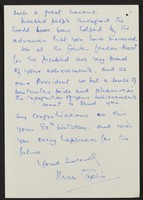 such a great honour.
Disabled people throughout the
world have been helped by the
advances that you have achieved.
We at the Greater London Assoc
for the Disabled are very proud
of your achievements, and as
our President
particular pride and pleasure in
the recognition of your achievements
I want to send you
my congratulations on
your 80th birthday. and wish
you every happiness for the
future.
Yours sincerely